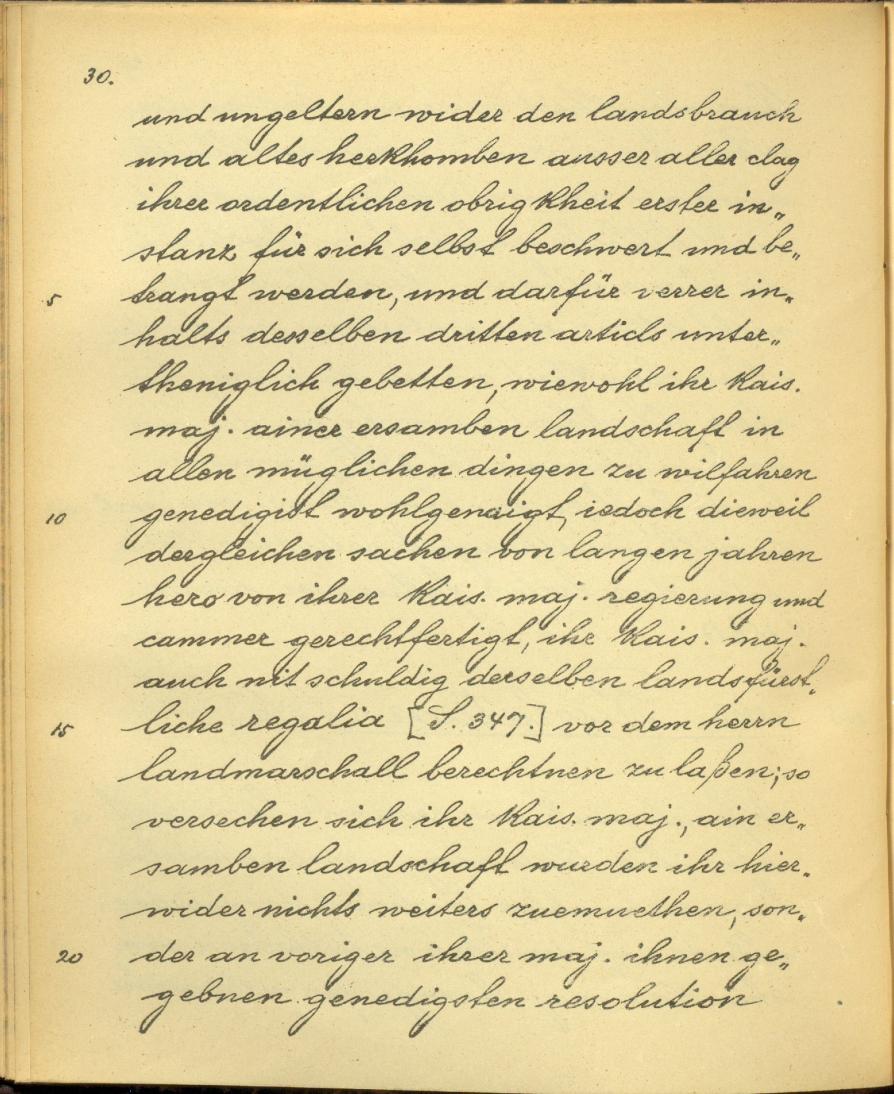 30.
und ungeltern wider den landsbrauch
und altes herkhomben ausser aller clag
ihrer ordentlichen obrigkheit erster in„
stanz für sich selbst beschwert und be„
5 trangt werden, und darfür verrer in„
halts desselben dritten articls unter„
theniglich gebetten, wiewohl ihr Kais.
maj. ainer ersamben landschaft in
allen müglichen dingen zu wilfahren
10 genedigist wohlgenaigt, iedoch dieweil
dergleichen sachen von langen jahren
hero von ihrer Kais. maj. regierung und
cammer gerechtfertigt, ihr Kais. maj.
auch nit schuldig derselben landsfürst„
15 liche regalia [S. 347.] vor dem herrn
landmarschall berechtnen zu laßen; so
versechen sich ihr Kais. maj., ain er„
samben landschaft wurden ihr hier„
wider nichts weiters zuemuethen, son„
20 der an voriger ihrer maj. ihnen ge„
gebnen genedigsten resolution